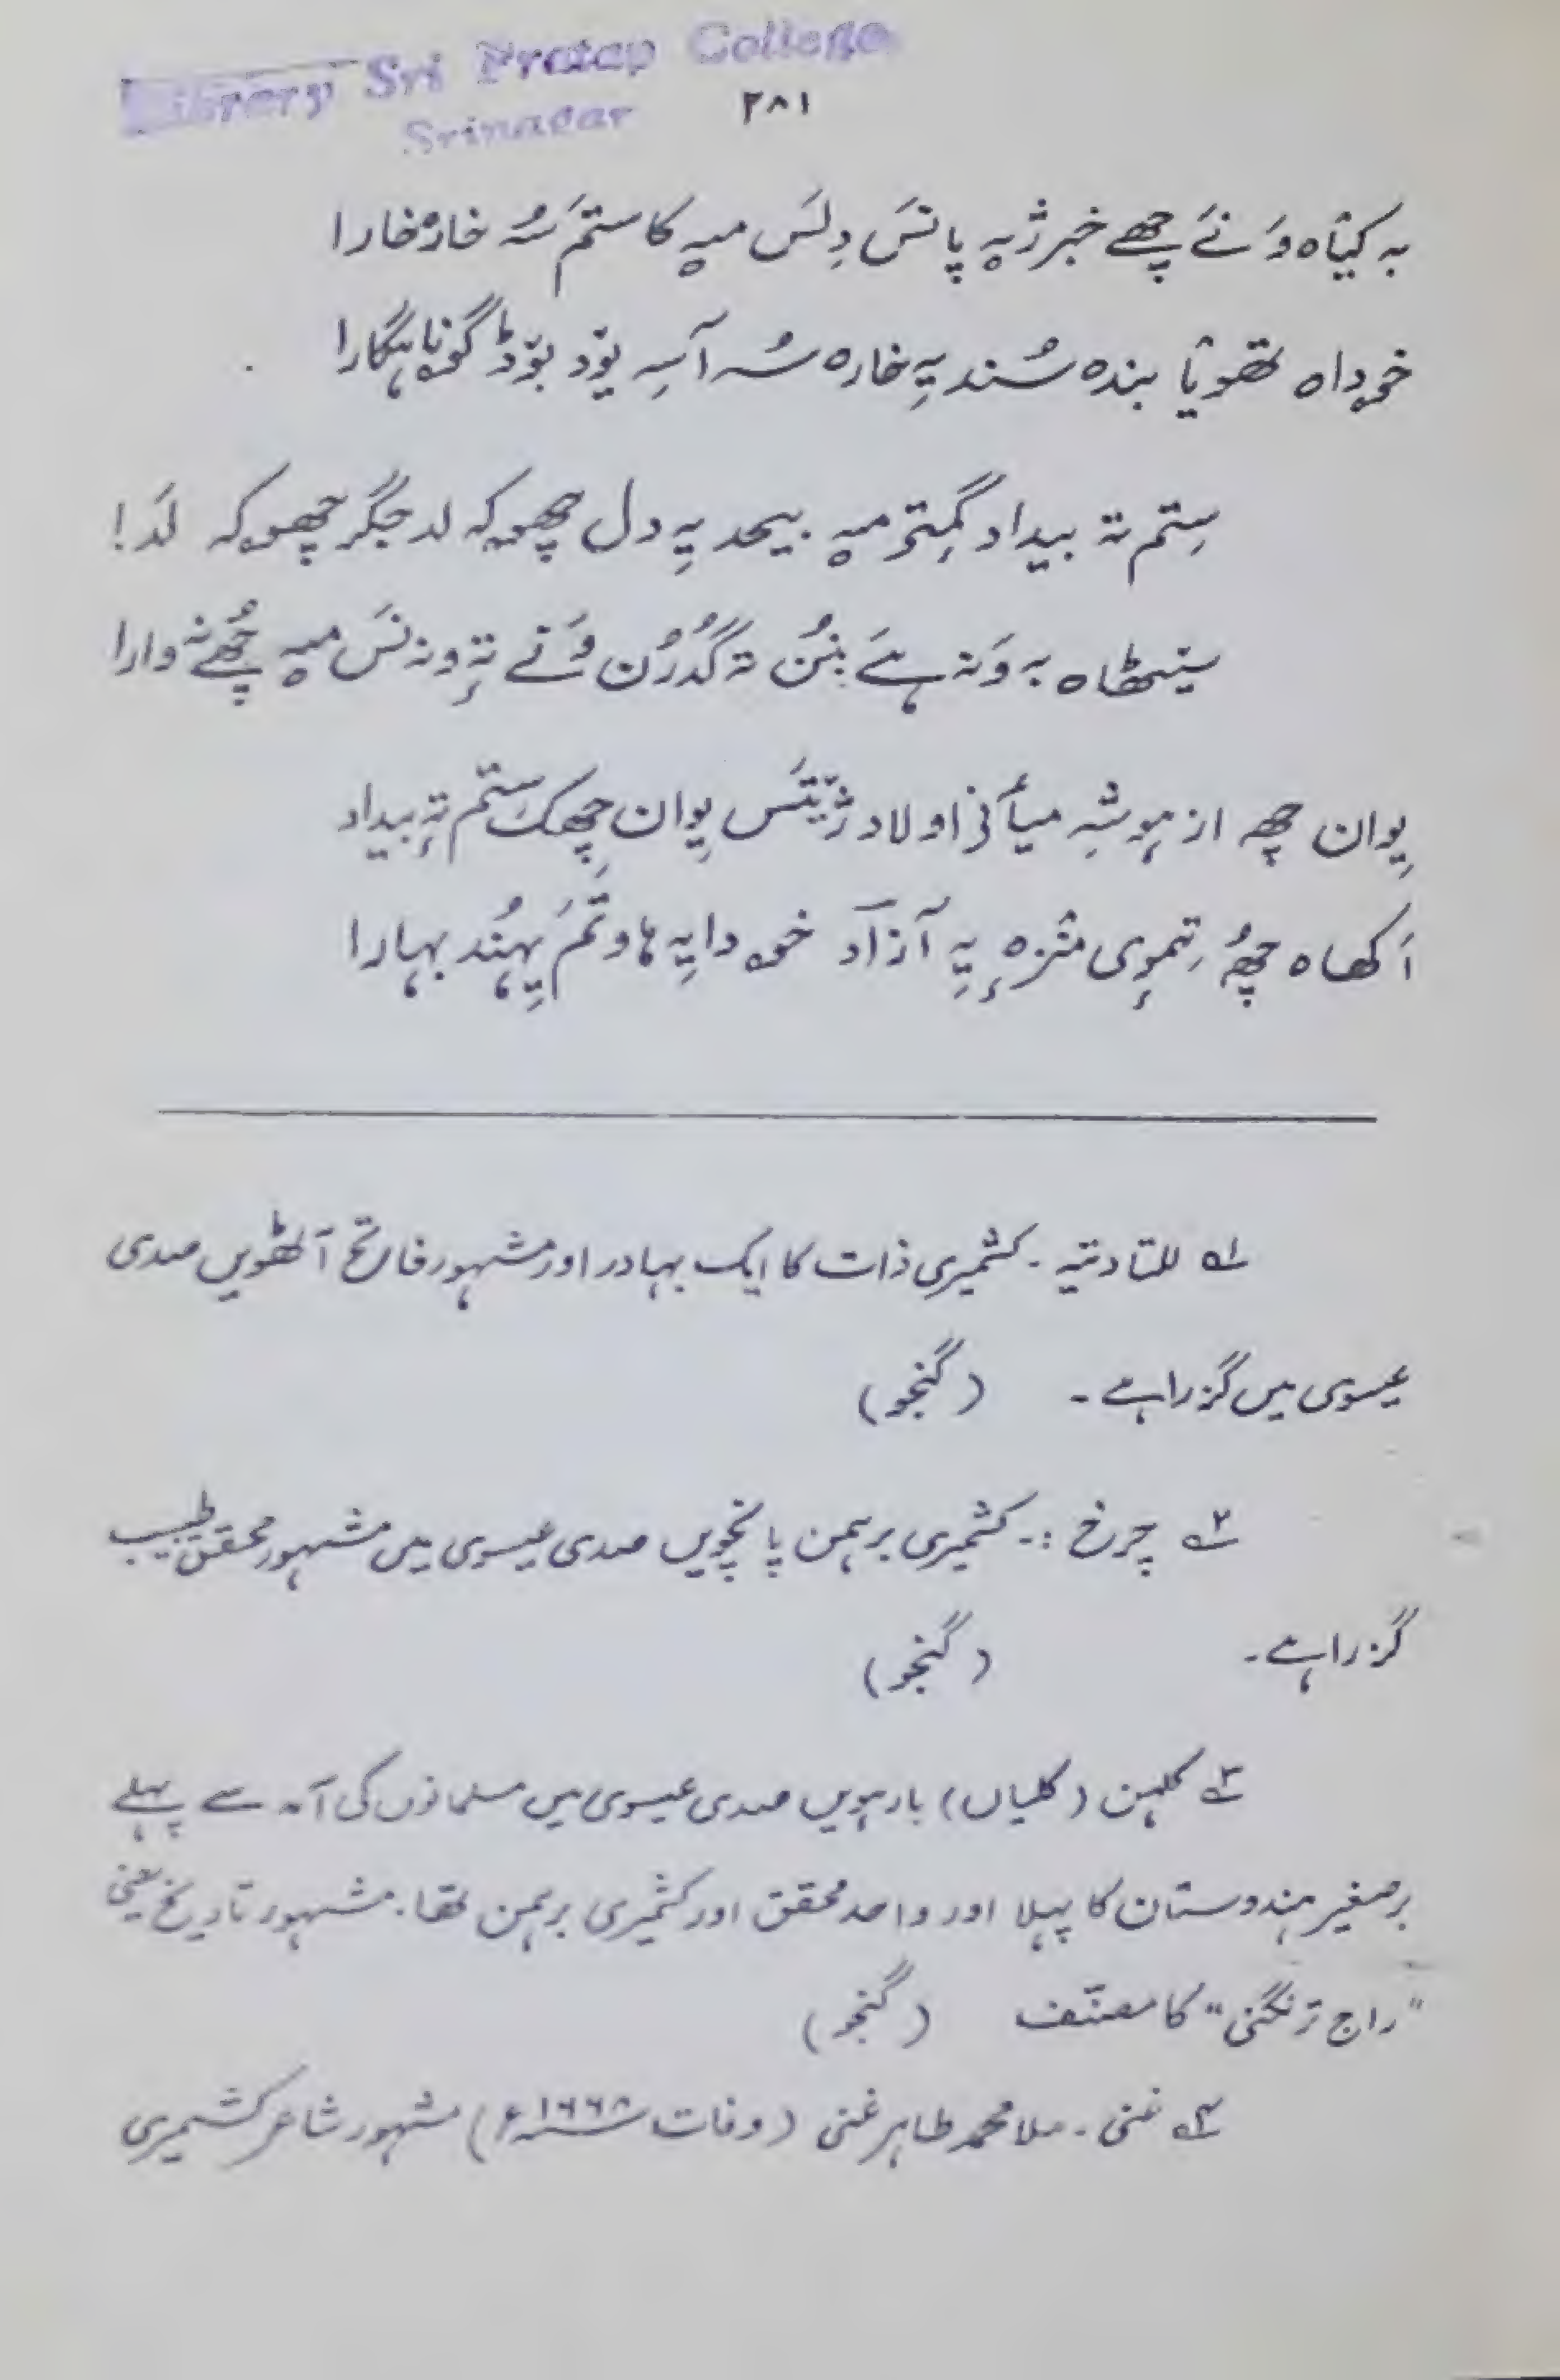 Library Sri Pratap College
Srinagar
۲۸۱
بہ کیٛاہ وَنَے چھے خبر ژیہ پانسَ دِلسَ میہ کاستمَ سُہ خارٕ خارا
خۄداہ تھوٛیا بندہ سُند یہِ خارہ سُہ آسہِ یوٚد بوٚڈ گۄناہگارا
سِتم تہ بیداد گمِتۍ میہ بیحد یہِ دل چھۄکہ لد جگر چھۄکہ لَد!
سیٹھاہ بہ وَنہ ہےَ بنُن تہ گُدرُن وَنے تہٕ ونہ نسَ میہ چھُے نہ وارا
یِوان چھِہ از ہۄشہِ میأنۍ اولاد ژیٚتَس یِوان چھِکَ ستم تہٕ بیداد
اَکھاہ چھُہ تِموٕی منزٕہ یہِ آزاد خۄدایہِ ہاوتَم یِہُند بہارا
۱؎ للتادتیہ ۔ کشمیری ذات کا ایک بہادر اور مشہور فاتح آٹھویں صدی
عیسوی میں گزرا ہے ۔ (گنجو)
۲؎ چرخ :۔ کشمیری برہمن پانچویں صدی عیسوی میں مشہور محقق طبیب
گزرا ہے۔ (گنجو)
۳؎ کلہن (کلیاں) بارہویں صدی عیسوی میں مسلمانوں کی آمد سے پہلے
برصغیر ہندوستان کا پہلا اور واحد محقق اور کشمیری برہمن تھا۔ مشہور تاریخ یعنی
"راج ترنگنی" کا مصنّف (گنجو)
۴؎ غنی ۔ ملا محمد طاہر غنی (وفات ۱۶۶۸ء) مشہور شاعر کشمیری